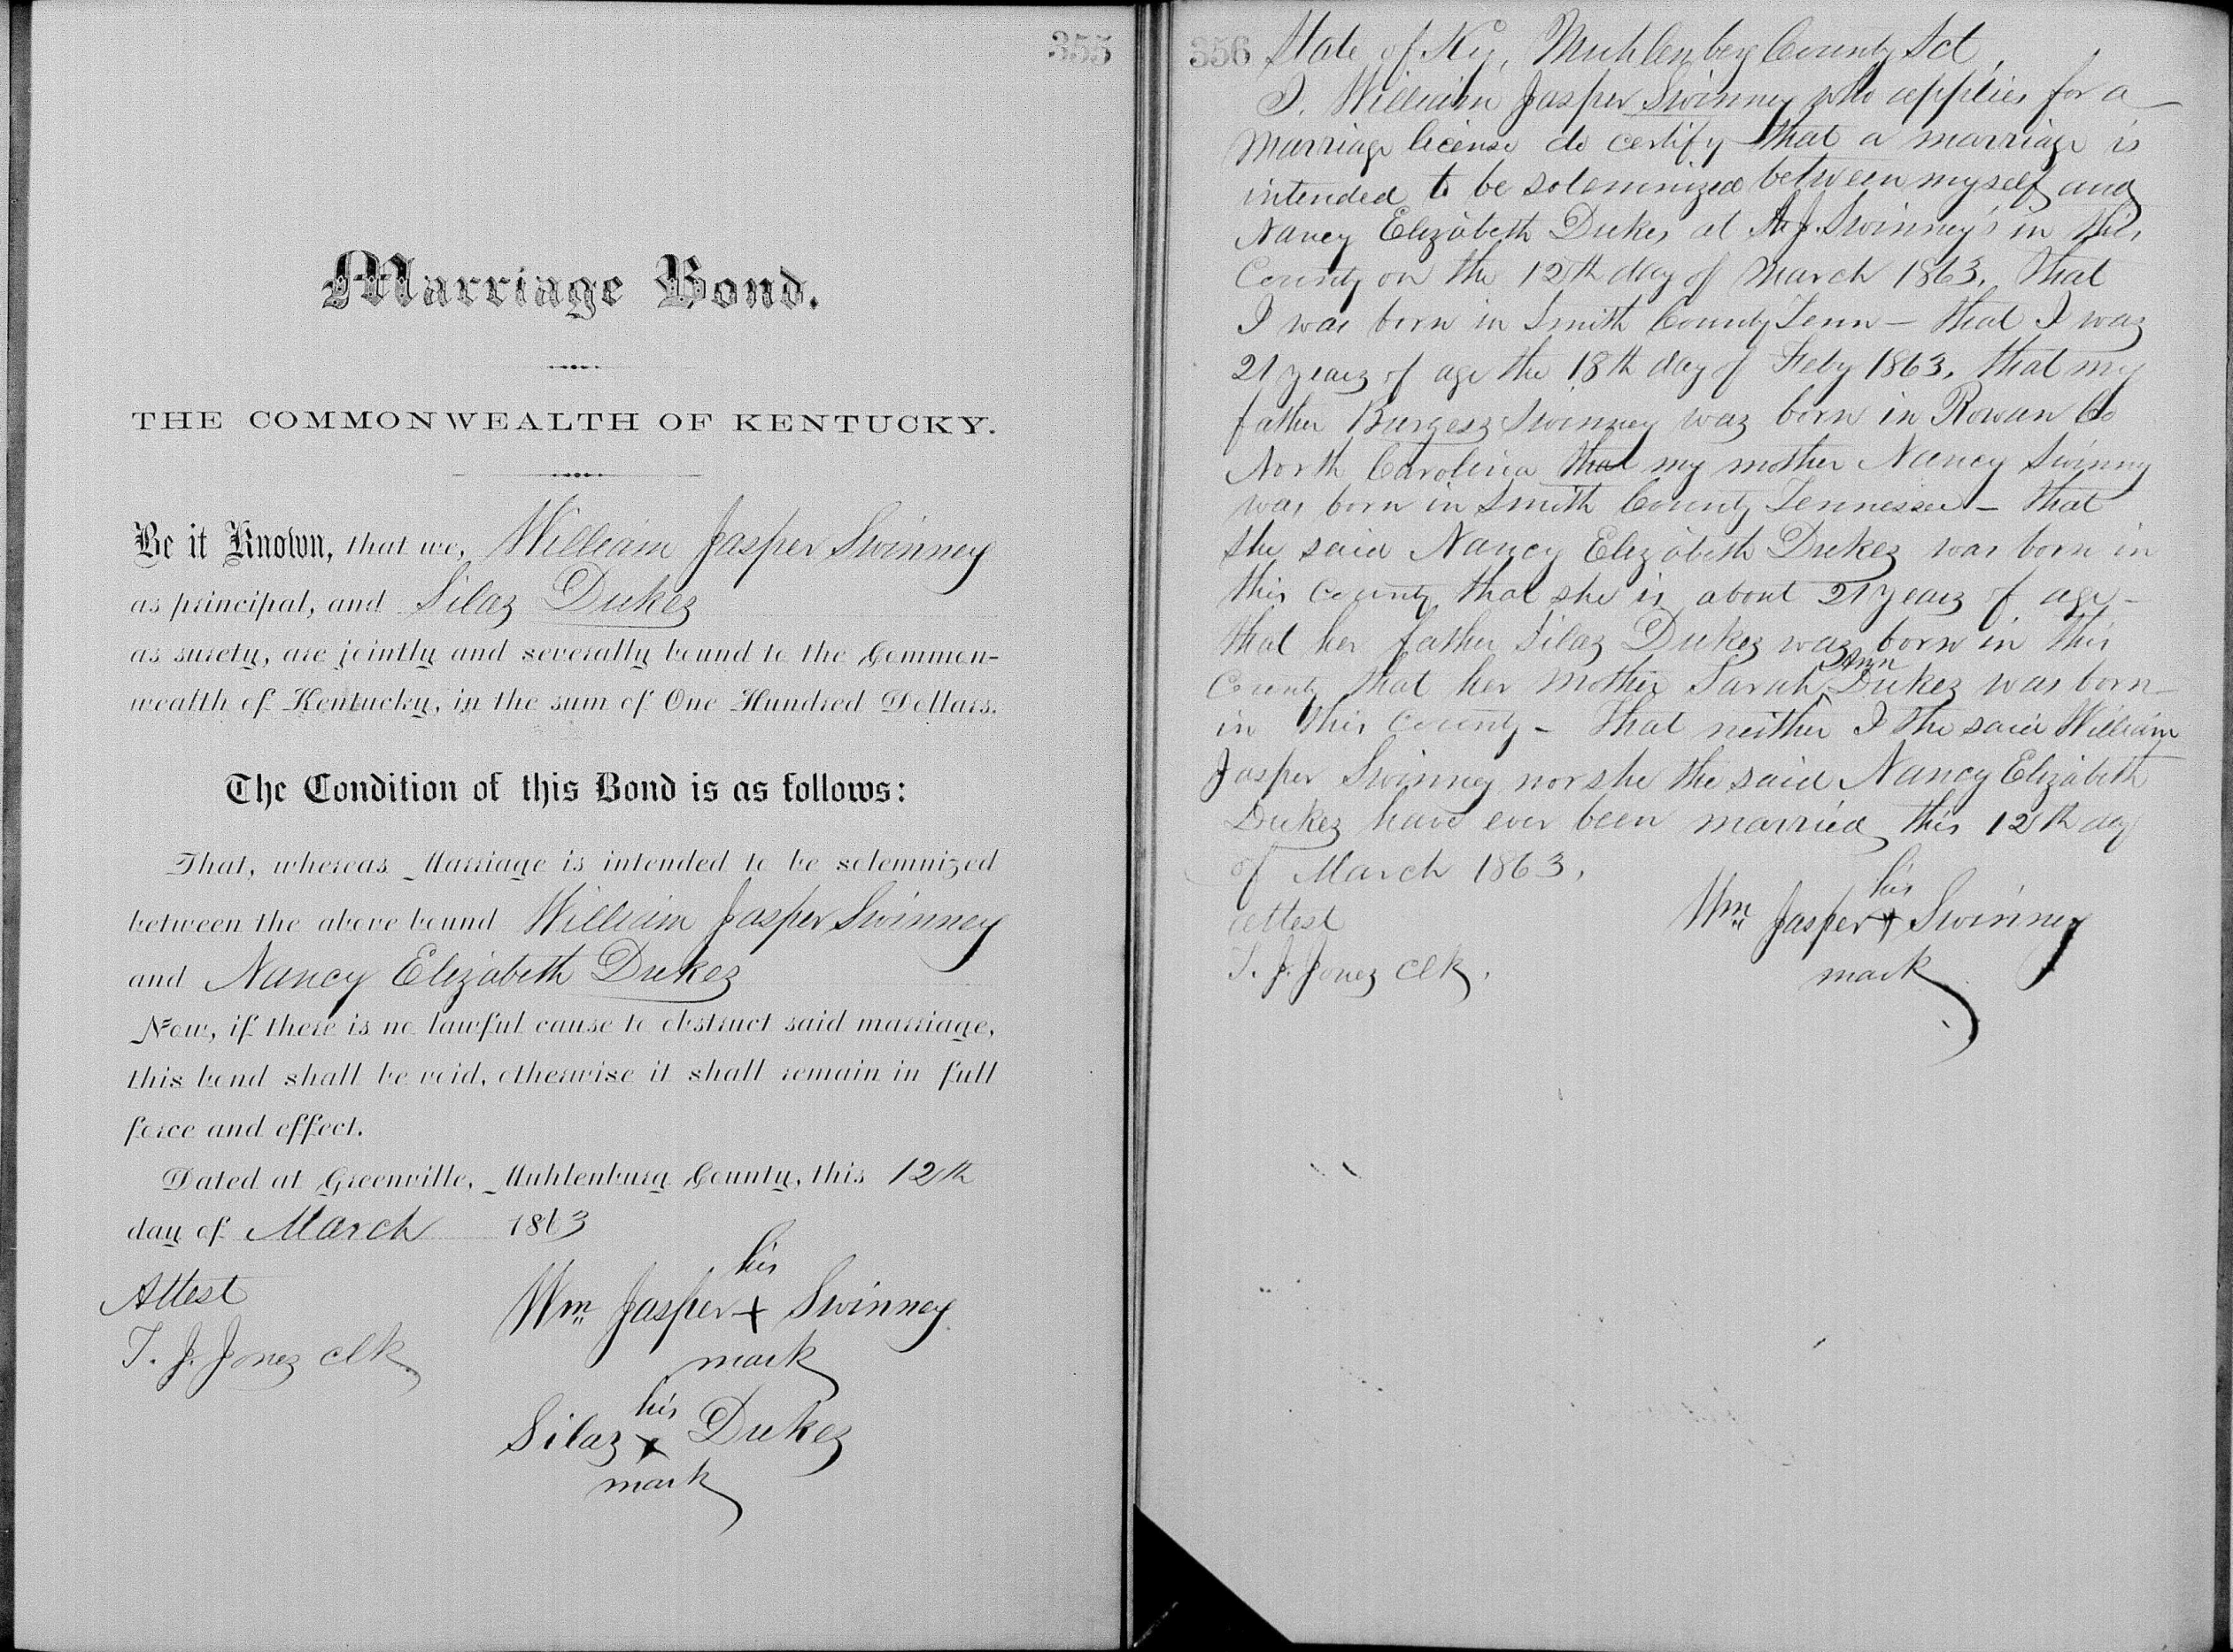 355
Marriage Bond.
THE COMMONWEALTH OF KENTUCKY.
Be it Known, that we, William Jasper Swinney
as principal, and Silas Dukes
as surety, are jointly and severally bound to the Common-
wealth of Kentucky, in the sum of One Hundred Dollars.
The Condition of this Bond is as follows:
That, whereas Marriage is intended to be solemnized
between the above bound William Jasper Swinney
and Nancy Elizabeth Dukes
Now, if there is no lawful cause to obstruct said marriage,
this bond shall be void, otherwise it shall remain in full
force and effect.
Dated at Greenville, Muhlenburg County, this 12th
day of March 1863
his
Attest Wm Jasper + Swinney
T. J. Jones clk. mark
his
Silas x Dukes
mark
356 State of Ky, Muhlenberg County Sct,
I. William Jasper Swinney who applies for a
Marriage license do certify that a marriage is
intended to be solemnized between myself and
Nancy Elizabeth Dukes at J. Swinney's in this
County on the 12th day of March 1863. that
I was born in Smith County Tenn - that I was
21 years of age the 18th day of Feby 1863. that my
father Burgess Swinney was born in Rowan Co
North Carolina that my mother Nancy Swinny
was born in Smith County Tennessee - that
she said Nancy Elizabeth Dukes was born in
this County that she is about 21 years of age -
that her father Silas Dukes was born in this
County that her mother Sarah Ann Dukes was born
in this County - that neither I the said William
Jasper Swinney nor she the said Nancy Elizabeth
Dukes have ever been married this 12th day
of March 1863.
his
Attest Wm Jasper + Swinney
T. J. Jones clk. mark